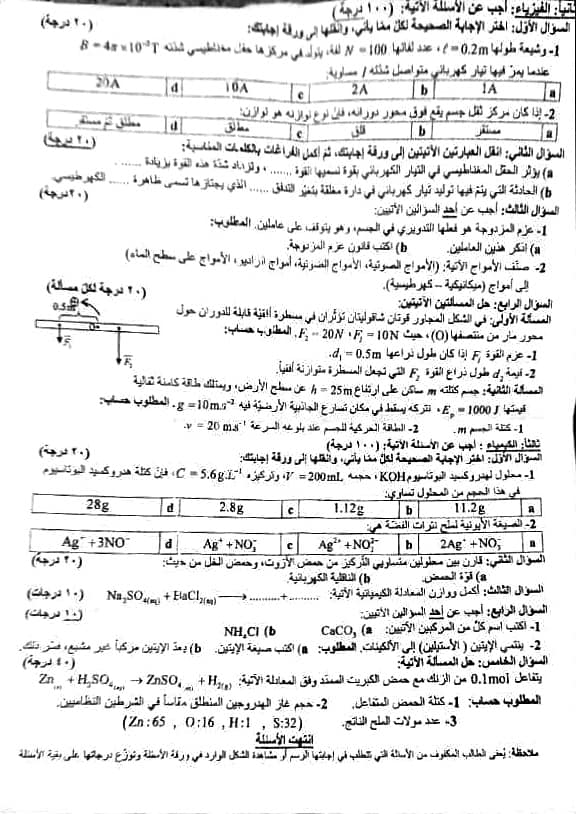 ثانياً: الفيزياء: أجب عن الأسئلة الآتية: (١٠٠ درجة)
السؤال الأول: اختر الإجابة الصحيحة لكل مما يأتي، وانقلها إلى ورقة إجابتك: (٢٠ درجة)
1- وشيعة طولها ℓ = 0.2m، عدد لفاتها N = 100 لفة، يتولد في مركزها حقل مغناطيسي شدته B = 4π×10⁻³T
عندما يمر فيها تيار كهربائي متواصل شدته / مساوية:
a 1A b 2A c 10A d 20A
2- إذا كان مركز ثقل جسم يقع فوق محور دورانه، فإن نوع توازنه هو توازن:
a مستقر b قلق c مطلق d مطلق ثم مستقر
السؤال الثاني: انقل العبارتين الآتيتين إلى ورقة إجابتك، ثم أكمل الفراغات بالكلمات المناسبة: (٢٠ درجة)
a) يؤثر الحقل المغناطيسي في التيار الكهربائي بقوة نسميها القوة ......، وتزداد شدة هذه القوة بزيادة ......
b) الحادثة التي يتم فيها توليد تيار كهربائي في دارة مغلقة بتغير التدفق ...... الذي يجتازها تسمى ظاهرة ...... الكهرطيسي.
السؤال الثالث: أجب عن أحد السؤالين الآتيين: (٢٠ درجة)
1- عزم المزدوجة هو فعلها التدويري في الجسم، وهو يتوقف على عاملين. المطلوب:
a) اذكر هذين العاملين. b) اكتب قانون عزم المزدوجة.
2- صنف الأمواج الآتية: (الأمواج الصوتية، الأمواج الضوئية، أمواج الراديو، الأمواج على سطح الماء)
إلى أمواج (ميكانيكية – كهرطيسية).
السؤال الرابع: حل المسألتين الآتيتين: (٢٠ درجة لكل مسألة)
المسألة الأولى: في الشكل المجاور قوتان شاقوليتان تؤثران في مسطرة أفقية قابلة للدوران حول
محور مار من منتصفها (O)، حيث F₁ = 10N، F₂ = 20N. المطلوب حساب:
1- عزم القوة F₁ إذا كان طول ذراعها d₁ = 0.5m.
2- قيمة d₂ طول ذراع القوة F₂ التي تجعل المسطرة متوازنة أفقياً.
0.5m
O
F₁
F₂
المسألة الثانية: جسم كتلته m ساكن على ارتفاع h = 25m عن سطح الأرض، ويمتلك طاقة كامنة ثقالية
قيمتها Eₚ = 1000 J، نتركه يسقط في مكان تسارع الجاذبية الأرضية فيه g = 10m.s⁻². المطلوب حساب:
1- كتلة الجسم m. 2- الطاقة الحركية للجسم عند بلوغه السرعة v = 20 m.s⁻¹.
ثالثاً: الكيمياء: أجب عن الأسئلة الآتية: (١٠٠ درجة)
السؤال الأول: اختر الإجابة الصحيحة لكل مما يأتي، وانقلها إلى ورقة إجابتك: (٢٠ درجة)
1- محلول لهيدروكسيد البوتاسيوم KOH، حجمه V = 200mL، وتركيزه C = 5.6g.L⁻¹، فإن كتلة هدروكسيد البوتاسيوم
في هذا الحجم من المحلول تساوي:
a 11.2g b 1.12g c 2.8g d 28g
2- الصيغة الأيونية لملح نترات الفضة هي:
a 2Ag⁺ + NO₃⁻ b Ag²⁺ + NO₃²⁻ c Ag⁺ + NO₃⁻ d Ag⁻ + 3NO⁻
السؤال الثاني: قارن بين محلولين متساويي التركيز من حمض الآزوت، وحمض الخل من حيث: (٢٠ درجة)
a) قوة الحمض. b) الناقلية الكهربائية.
السؤال الثالث: أكمل ووازن المعادلة الكيميائية الآتية: Na₂SO₄₍aq₎ + BaCl₂₍aq₎ ⟶ .......... + .......... (١٠ درجات)
السؤال الرابع: أجب عن أحد السؤالين الآتيين: (١٠ درجات)
1- اكتب اسم كل من المركبين الآتيين: a) CaCO₃ b) NH₄Cl
2- ينتمي الإيتين (الأستيلين) إلى الألكينات. المطلوب: a) اكتب صيغة الإيتين. b) يعد الإيتين مركباً غير مشبع، فسر ذلك.
السؤال الخامس: حل المسألة الآتية: (٤٠ درجة)
يتفاعل 0.1mol من الزنك مع حمض الكبريت الممدد وفق المعادلة الآتية: Zn₍s₎ + H₂SO₄₍aq₎ → ZnSO₄₍aq₎ + H₂₍g₎
المطلوب حساب: 1- كتلة الحمض المتفاعل. 2- حجم غاز الهدروجين المنطلق مقاساً في الشرطين النظاميين.
3- عدد مولات الملح الناتج.
(Zn:65 , O:16 , H:1 , S:32)
انتهت الأسئلة
ملاحظة: يُعفى الطالب المكفوف من الأسئلة التي تتطلب في إجابتها الرسم أو مشاهدة الشكل الوارد في ورقة الأسئلة وتوزع درجاتها على بقية الأسئلة